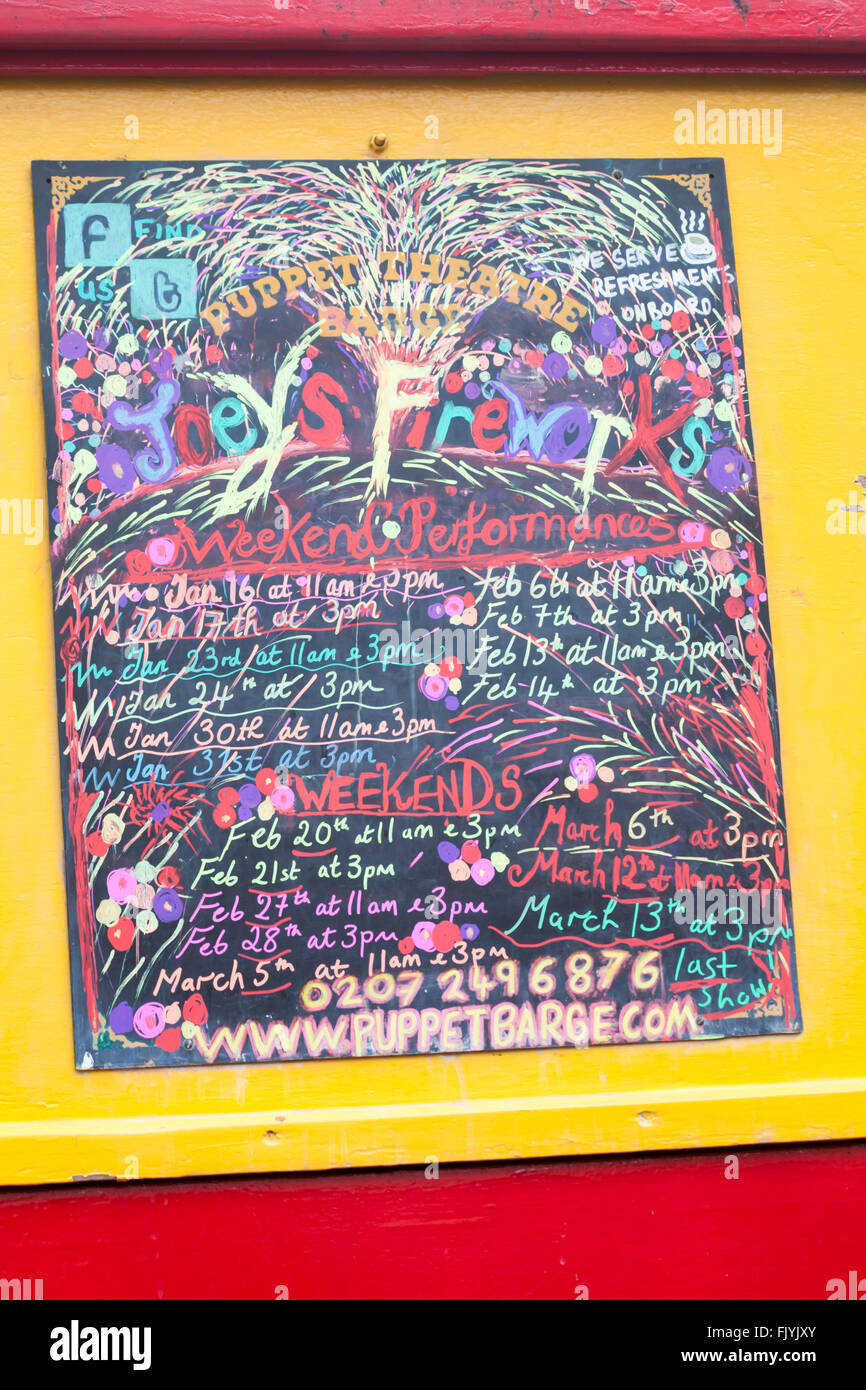 f FIND
us t
PUPPET THEATRE
BARGE
WE SERVE
REFRESHMENTS
ONBOARD.
Joeys Fireworks
Weekend Performances
Jan 16 at 11am & 3pm
Jan 17th at 3pm
Jan 23rd at 11am & 3pm
Jan 24th at 3pm
Jan 30th at 11am & 3pm
Jan 31st at 3pm
Feb 6th at 11am & 3pm
Feb 7th at 3pm
Feb 13th at 11am & 3pm
Feb 14th at 3pm
WEEKENDS
Feb 20th at 11am & 3pm
Feb 21st at 3pm
Feb 27th at 11am & 3pm
Feb 28th at 3pm
March 5th at 11am & 3pm
March 6th at 3pm
March 12th at 11am & 3pm
March 13th at 3pm
last
show
0207 249 6876
WWW.PUPPETBARGE.COM
a
alamy
alamy stock photo
FJYJXY
www.alamy.com